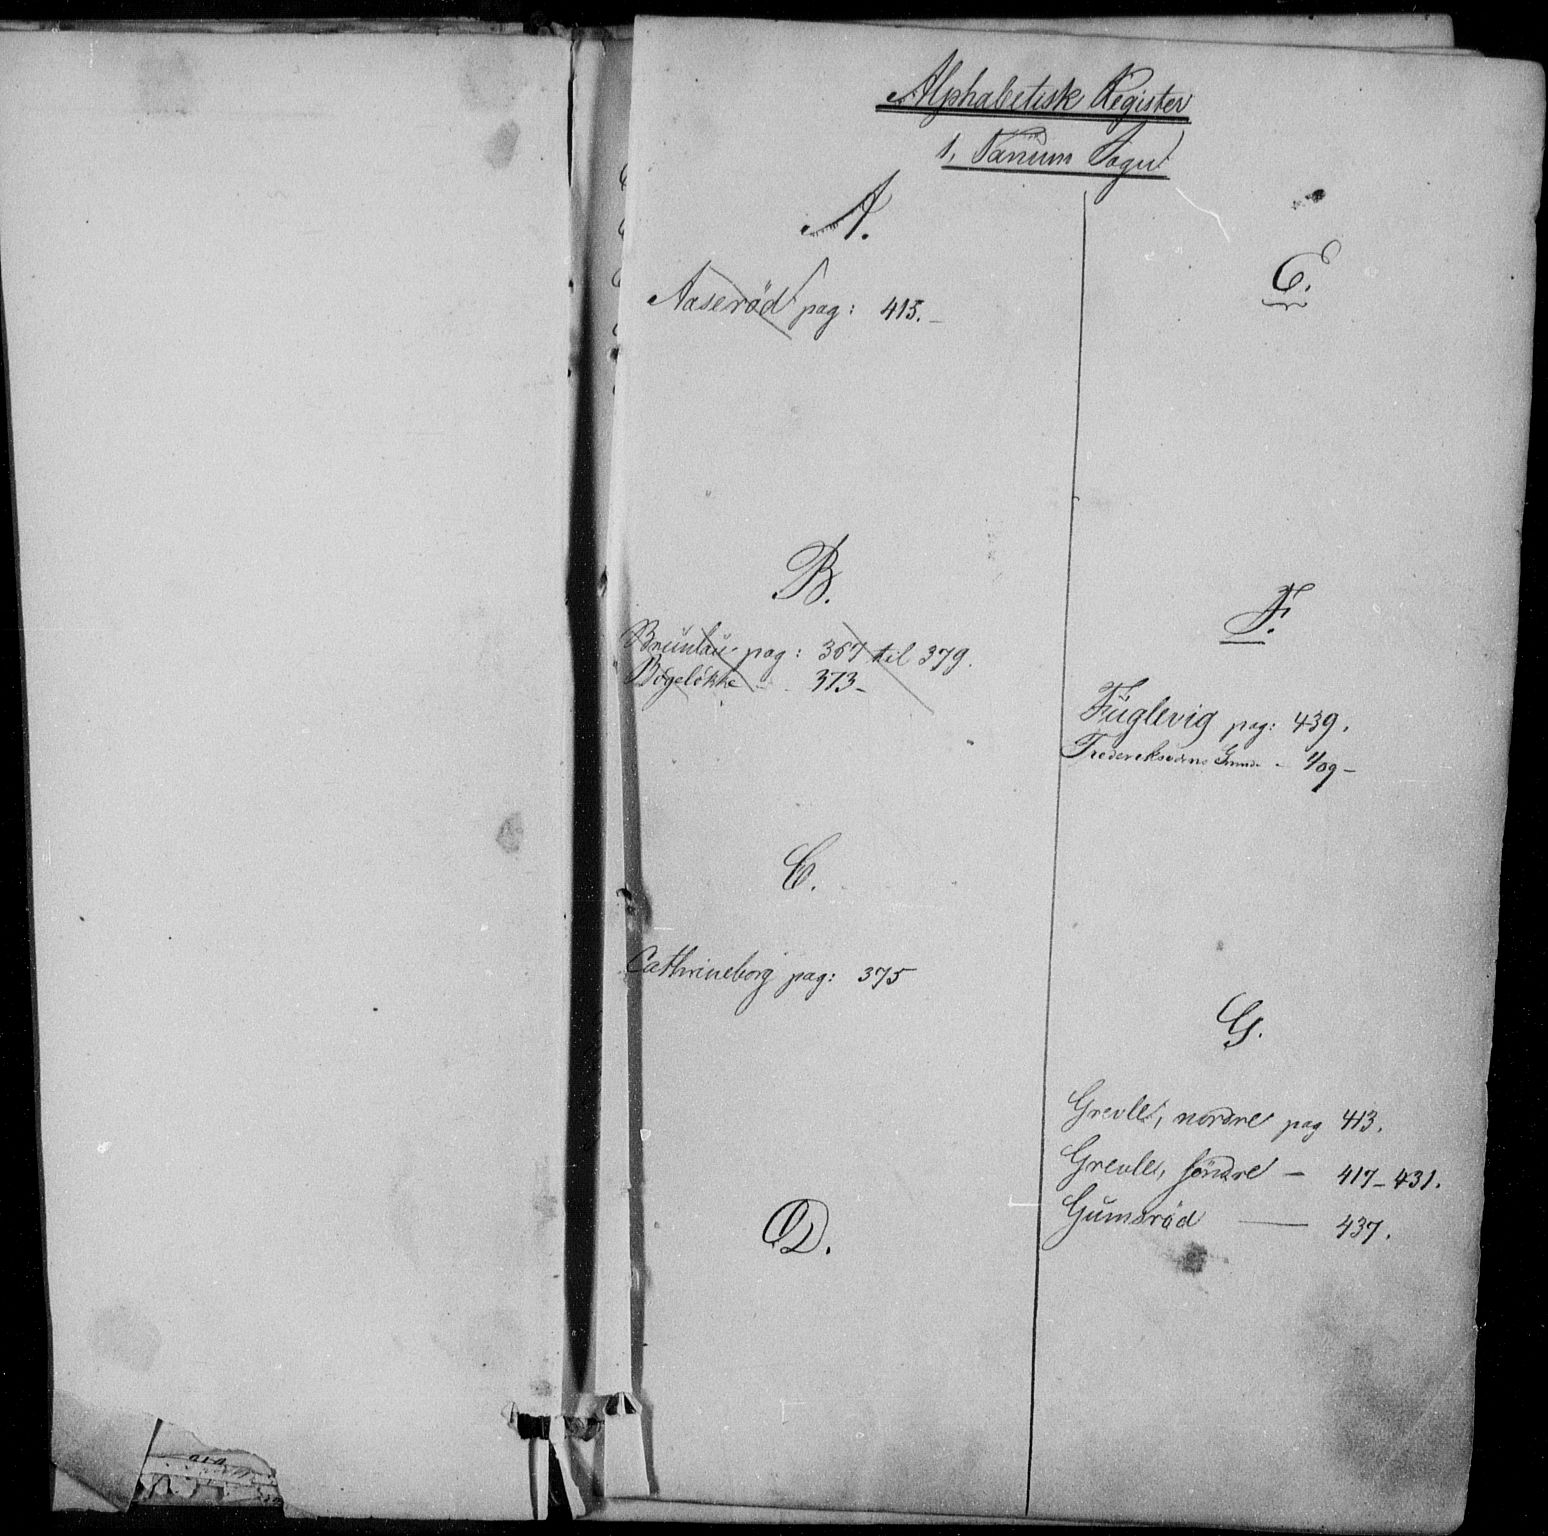 Alphabetisk Register
1, Tanum Sogn
A.
Aaserød pag: 415.-
B.
Brunlau pag: 367 til 379.
Bøgeløkke - 373-
C.
Cathrineborg pag: 375
D.
E.
F.
Fuglevig pag: 439.
Frederiksværns Grund - 409-
G.
Grevle, nordre pag 413.
Grevle, søndre - 417-431.
Gumsrød - 437.